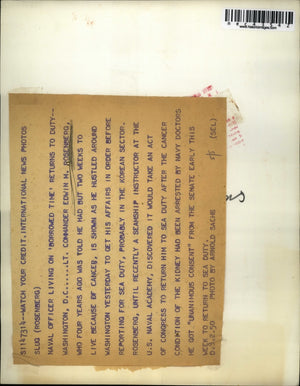 SI1417314--WATCH YOUR CREDIT..INTERNATIONAL NEWS PHOTOS
SLUG (ROSENBERG)
NAVAL OFFICER LIVING ON 'BORROWED TIME' RETURNS TO DUTY--
WASHINGTON, D.C......LT. COMMANDER EDWIN M. ROSENBERG,
WHO FOUR YEARS AGO WAS TOLD HE HAD BUT TWO WEEKS TO
LIVE BECAUSE OF CANCER, IS SHOWN AS HE HUSTLED AROUND
WASHINGTON YESTERDAY TO GET HIS AFFAIRS IN ORDER BEFORE
REPORTING FOR SEA DUTY, PROBABLY IN THE KOREAN SECTOR.
ROSENBERG, UNTIL RECENTLY A SEAMSHIP INSTRUCTOR AT THE
U.S. NAVAL ACADEMY, DISCOVERED IT WOULD TAKE AN ACT
OF CONGRESS TO RETURN HIM TO SEA DUTY AFTER THE CANCER
CONDITION OF THE KIDNEY HAD BEEN ARRESTED BY NAVY DOCTORS
HE GOT "UNANIMOUS CONSENT" FROM THE SENATE EARLY THIS
WEEK TO RETURN TO SEA DUTY.
PHOTO BY ARNOLD SACHS
(SEL)